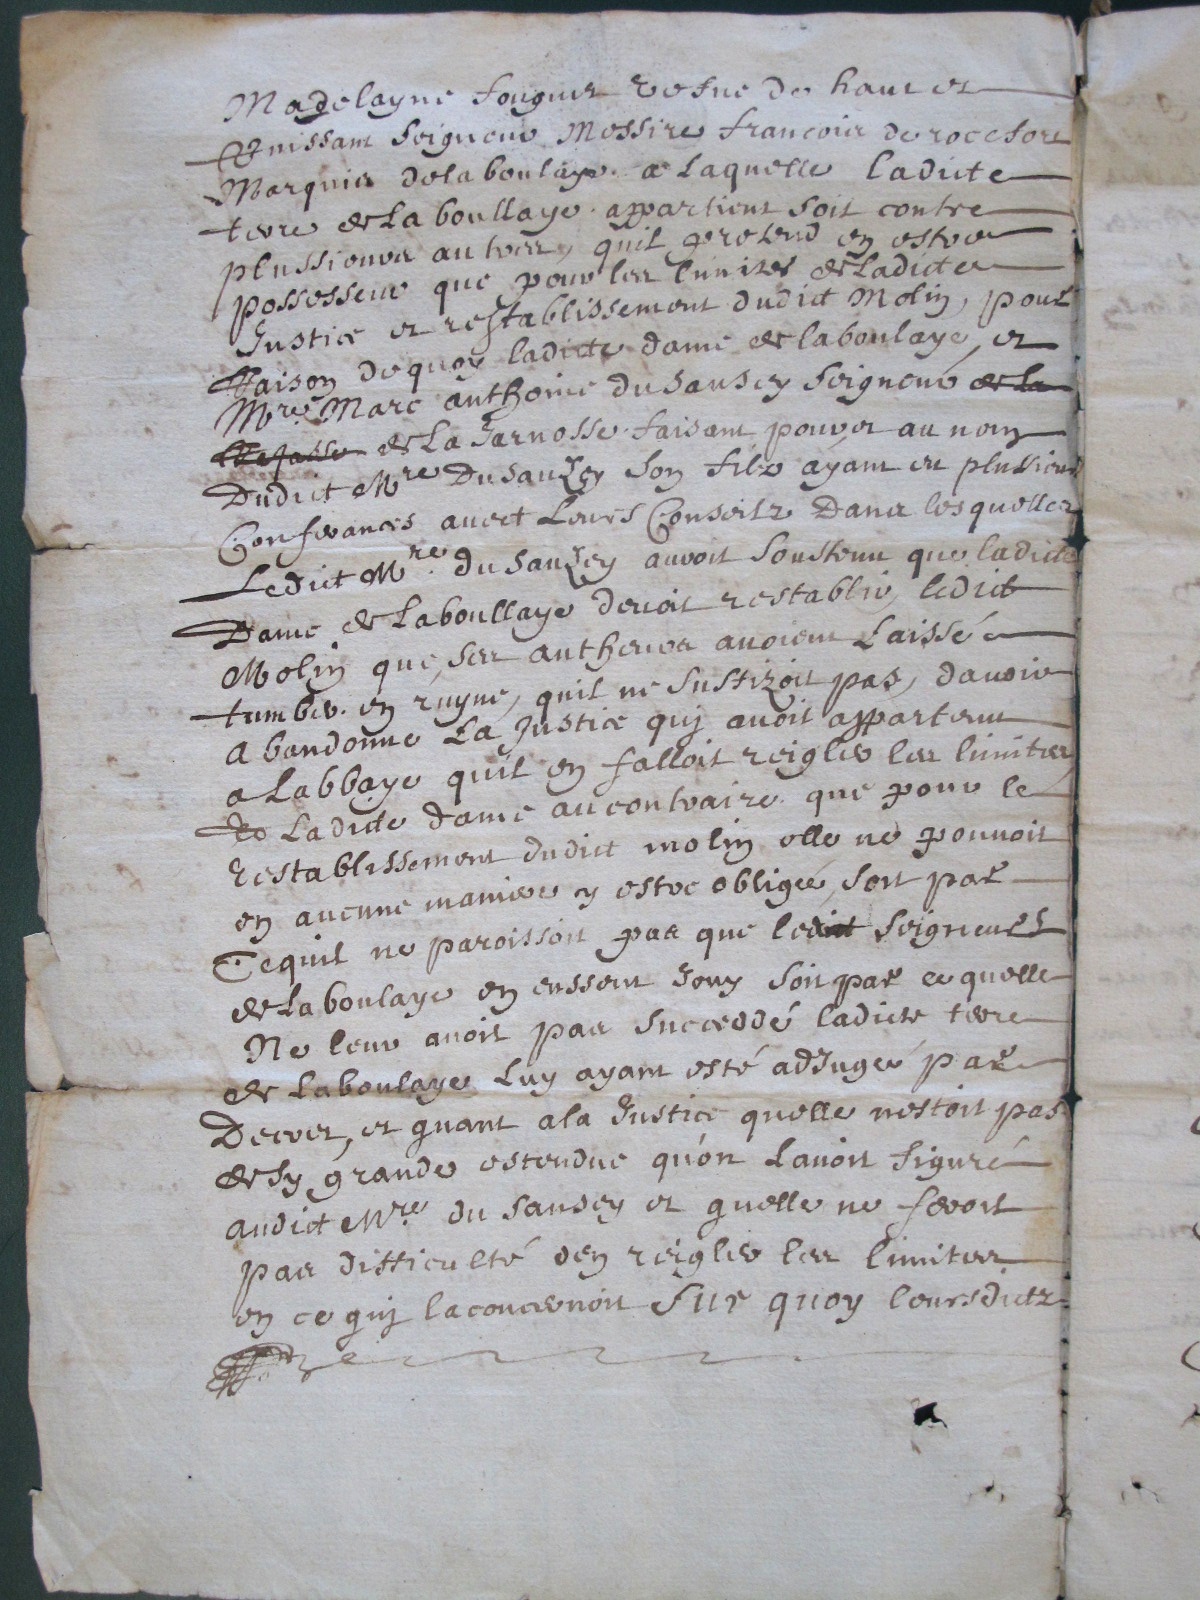 Madelayne fouquet vefue de haut et
Puissant Seigneur Messire francois de rocefort
Marquis delaboulaye a laquelle ladicte
terre de Laboullaye appartient soit contre
plussieurs autres, quil pretend en estre
possesseur que pour les limites de Ladicte
Justice et restablissement dudict Molin, pour
Raison dequoy ladicte dame de laboulaye, et
Mre Marc anthoine du Sausey Seigneur de la
de La Jarnosse faisant pour et au nom
Dudict Mre Du Sauzey son filz ayant eu plusieurs
Conferances avect Leurs Conseilz Dans lesquelles
Ledict Mre du Sauzey auroit Soustenu que ladicte
Dame de Laboullaye devoit restablir, ledict
Molin que ses autheurs avoient Laissé
tumber en ruyne, quil ne suffizoit pas, davoir
abandonne La Justice quj avoit appartenu
a Labbaye quil en falloit reigler les limites
Et Ladicte dame aucontraire que pour le
Restablissement dudict molin elle ne pouvoit
en aucune maniere y estre obligée, soit par
Cequil ne paroissoit pas que lesdict Seigneurs
de Laboulaye en eussent Jouy soit par ce quelle
Ne leur avoit pas succeddé ladicte terre
de Laboulaye Luy ayant esté adJugée par
Decret, et quant a la Justice quelle nestoit pas
de sy grande estendue quon Lavoit figuré
audict Mre du Sausey et quelle ne feroit
pas difficulté den reigler les limites
en ce quj laconcernoit Sur quoy leursdictz